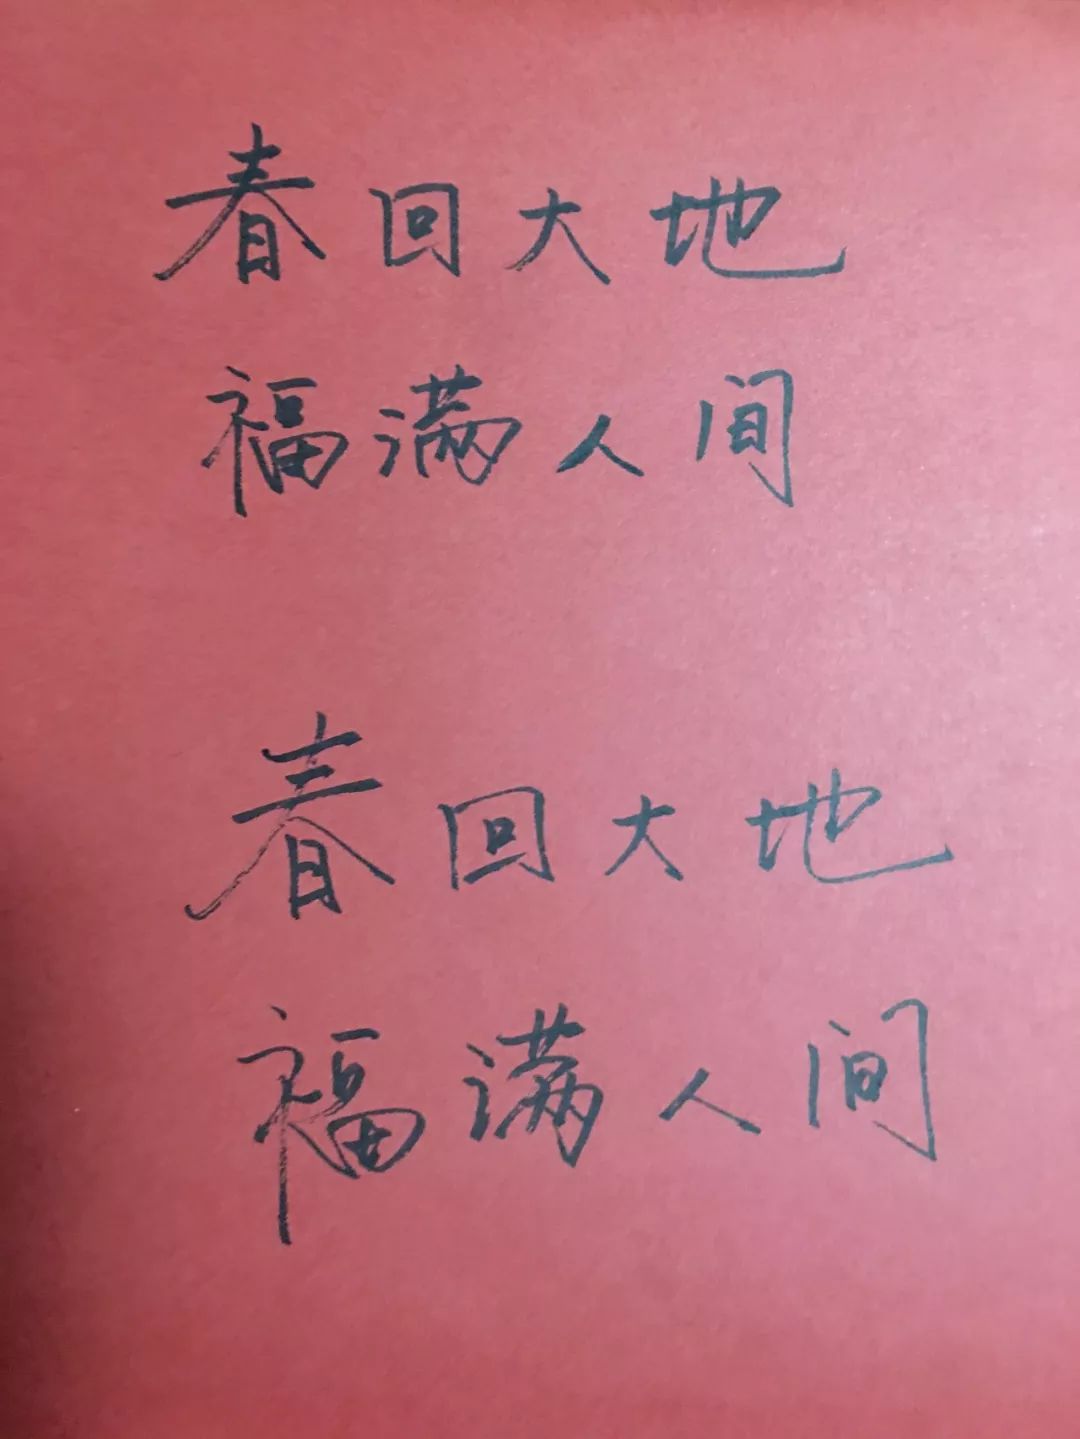 春回大地
福满人间
春回大地
福满人间